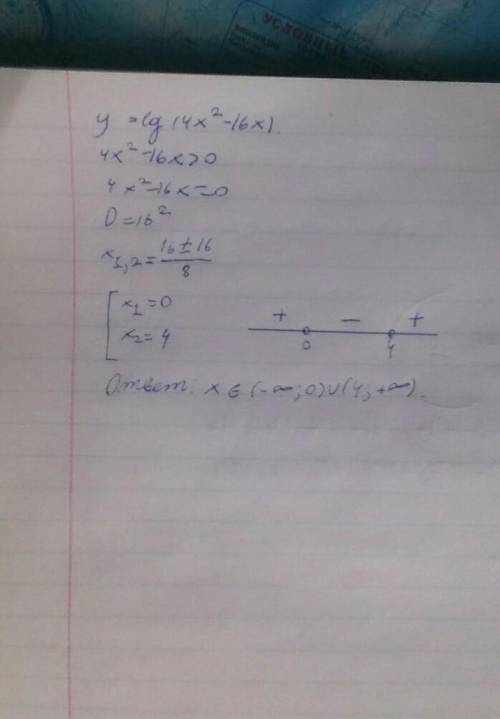 УСЛОВНЫЕ
y = lg (4x² - 16x).
4x² - 16x > 0
4x² - 16x = 0
D = 16²
x₁,₂ = (16 ± 16)/8
[ x₁ = 0
x₂ = 4
+ − +
0 4
Ответ: x ∈ (-∞; 0) ∪ (4; +∞).